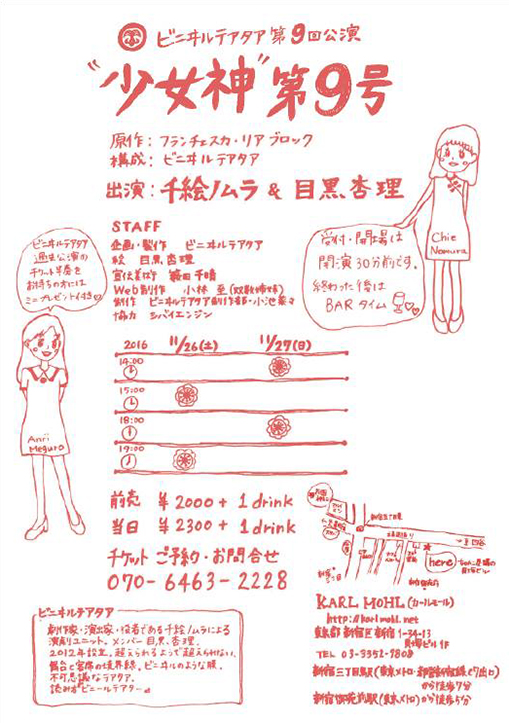 ビニヰルテアタア第9回公演
"少女神"第9号
原作：フランチェスカ・リア ブロック
構成：ビニヰルテアタア
出演：千絵ノムラ & 目黒杏理
STAFF
企画・製作 ビニヰルテアタア
絵 目黒杏理
宣伝美術 千晴
Web制作 小林 至(双数姉妹)
制作 ビニヰルテアタア創作部・小池菜々
協力 シバイエンジン
Chie
Nomura
受付・開場は
開演30分前です。
終わった後は
BARタイム
ビニヰルテアタア
過去公演の
チケット半券を
お持ちの方には
ミニプレゼント付き
Anri
Meguro
2016 11/26(土) 11/27(日)
14:00
15:00
18:00
19:00
前売 ¥2000+1drink
当日 ¥2300+1drink
チケットご予約・お問合せ
070-6463-2228
here
KARL MOHL(カールモール)
http://karlmohl.net
東京都新宿区新宿1-34-13
貝塚ビルB1F
TEL 03-3351-7808
新宿三丁目駅(東京メトロ・都営新宿線C7出口)
から徒歩7分
新宿御苑前駅(東京メトロ)から徒歩5分
ビニヰルテアタア
劇作家・演出家・役者である千絵ノムラによる
演劇ユニット。メンバー目黒杏理。
2012年設立。超えられるようで超えられない、
舞台と客席の境界線。ビニヰルのような膜。
不可思議なテアタア。
読み方"ビニールテアター"。